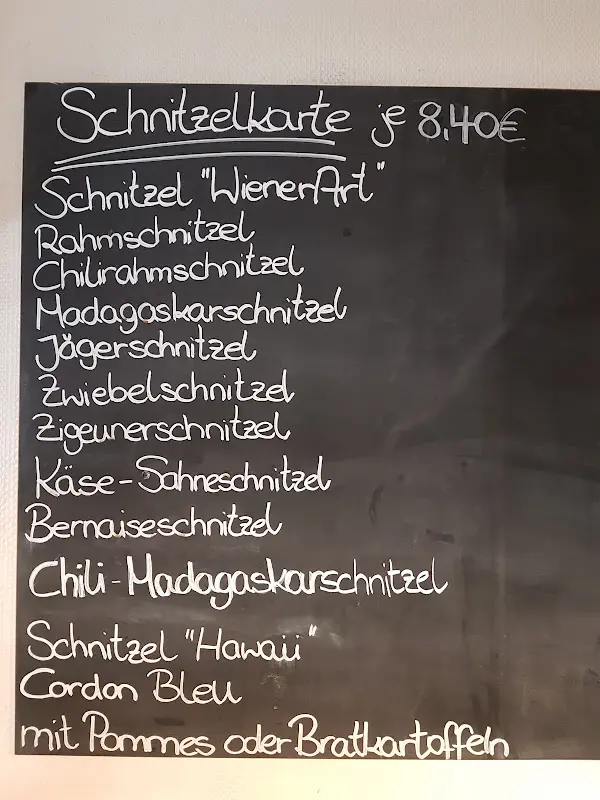 Schnitzelkarte je 8,40€
Schnitzel "Wiener Art"
Rahmschnitzel
Chilirahmschnitzel
Madagaskarschnitzel
Jägerschnitzel
Zwiebelschnitzel
Zigeunerschnitzel
Käse-Sahneschnitzel
Bernaiseschnitzel
Chili-Madagaskarschnitzel
Schnitzel "Hawaii"
Cordon Bleu
mit Pommes oder Bratkartoffeln